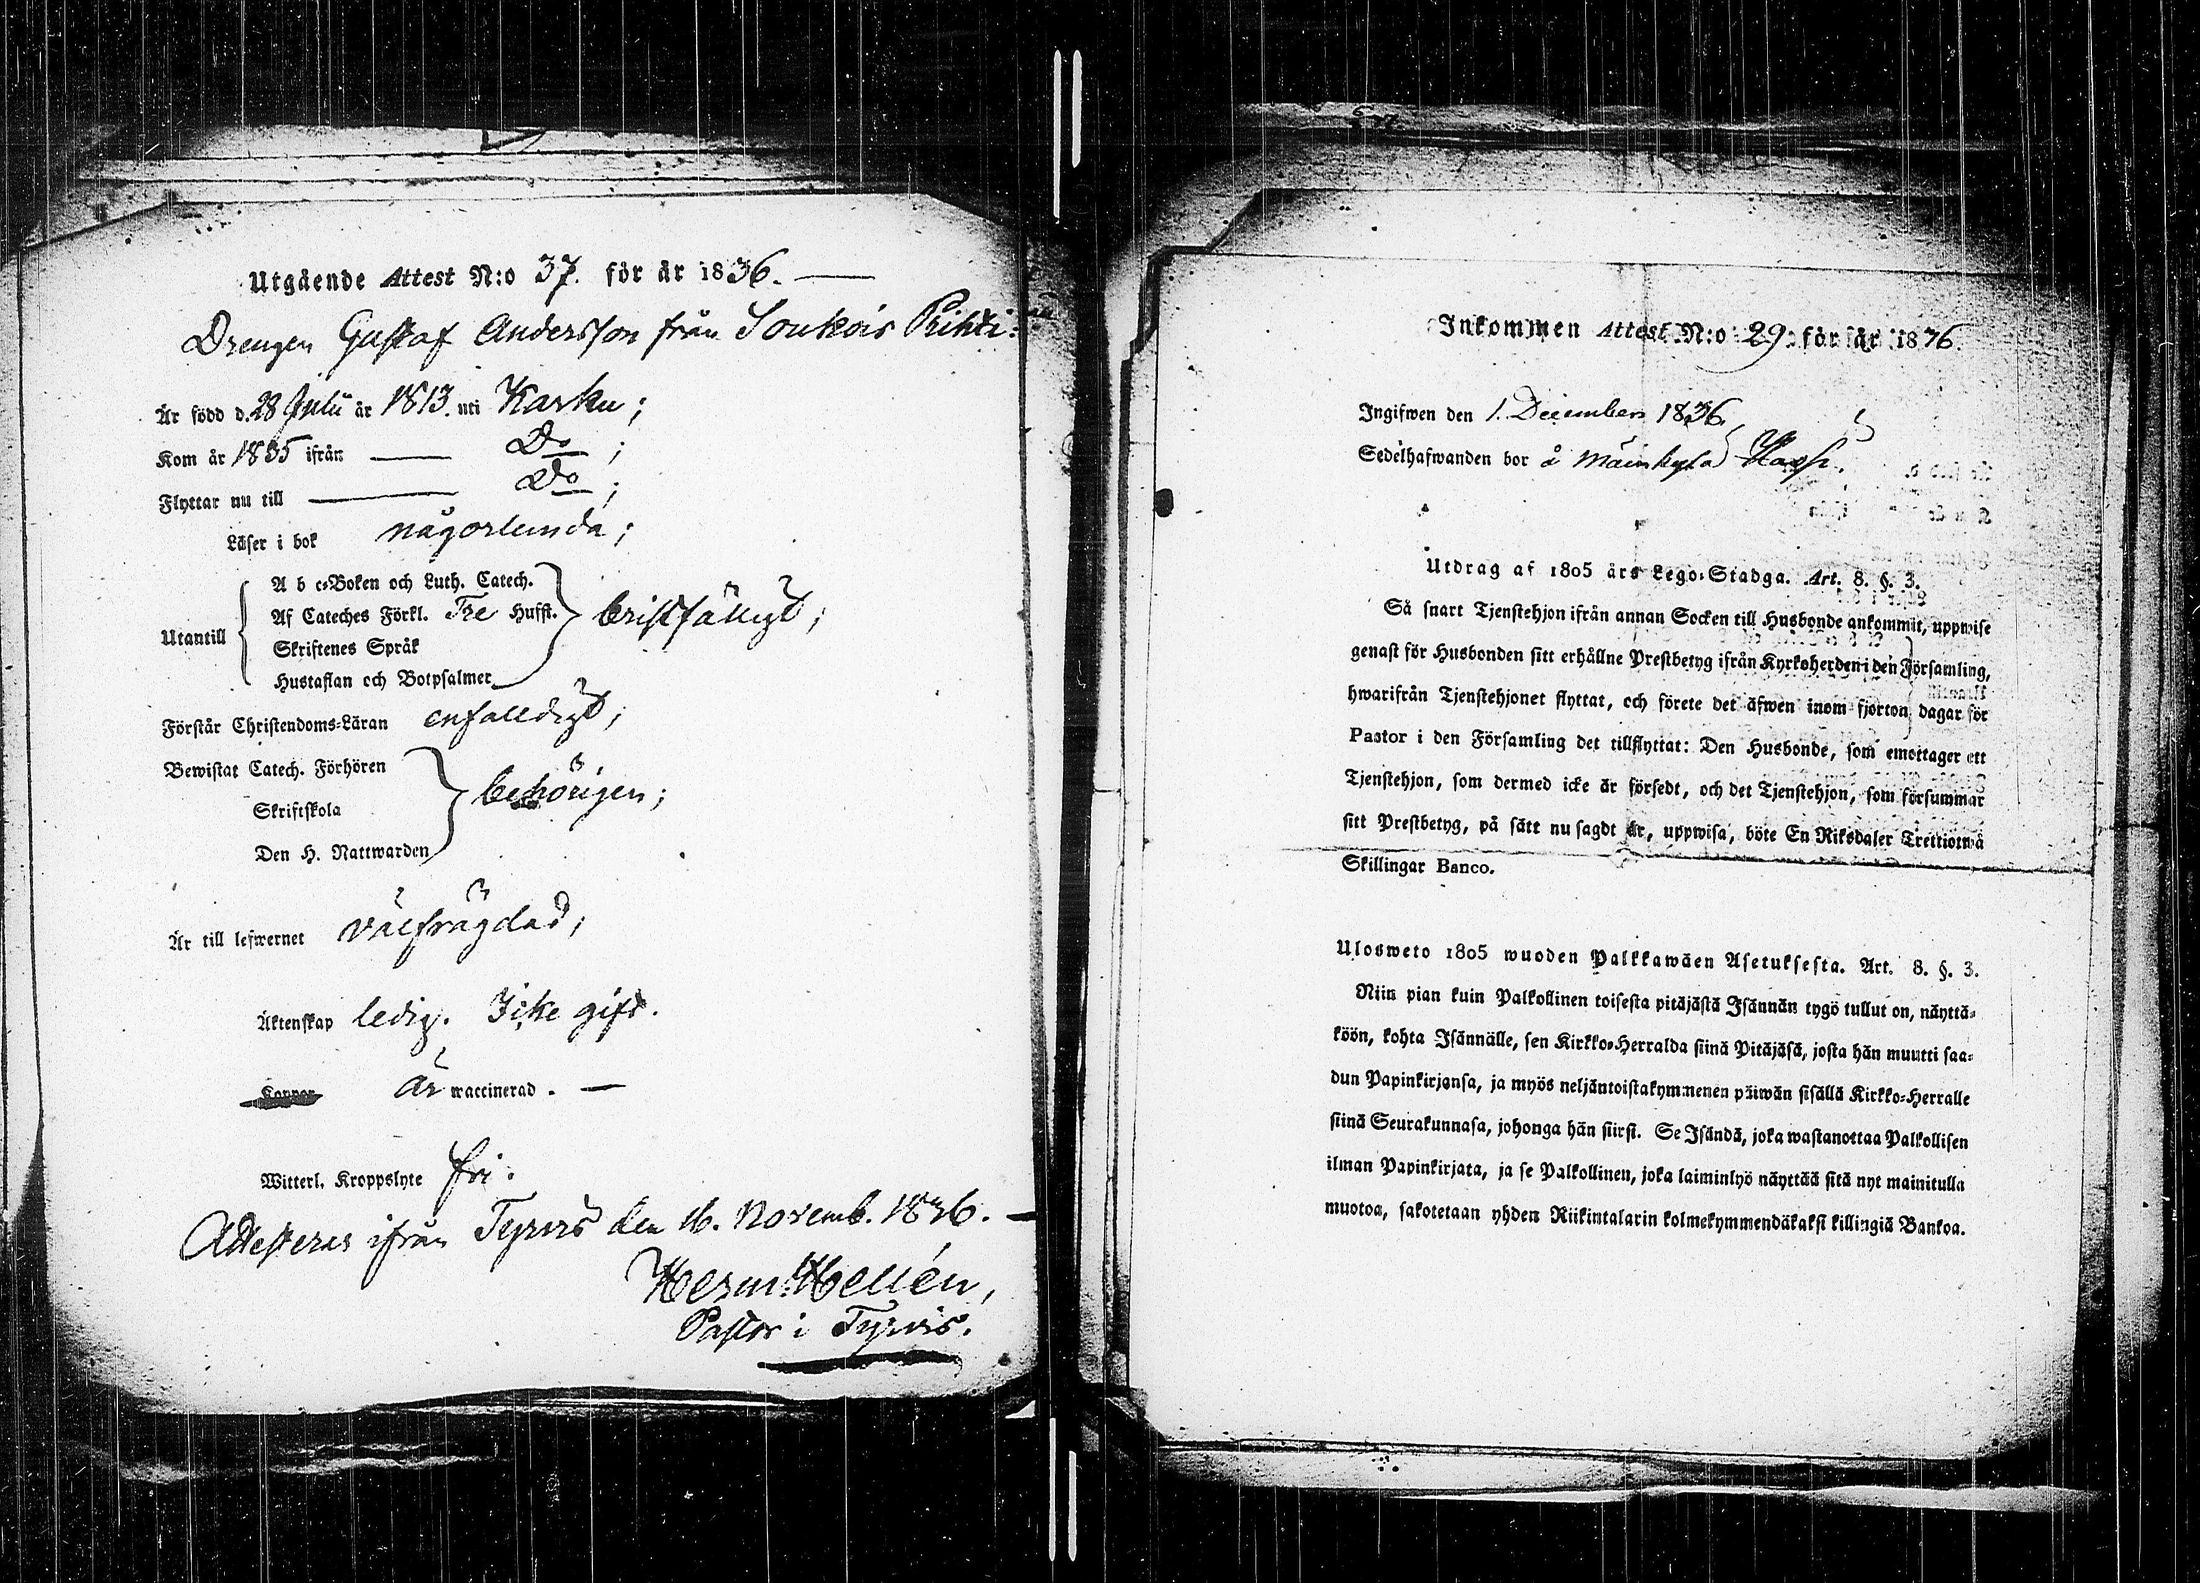 Utgående Attest N:o 37. för år 1836. —
Drengen Gustaf Andersson från Soukois Prihti:
Är född d. 28 Julii år 1813. uti Karku;
Kom år 1835 ifrån —— Do;
Flyttar nu till —— Do;
Läser i bok någorlunda;
Utantill
A b c-Boken och Luth. Catech.
Af Cateches Förkl. Tre Hufft.
Skriftenes Språk
Hustaflan och Botpsalmer
bristfälligt;
Förstår Christendoms-Läran enfalldigt;
Bewistat Catech. Förhören
Skriftskola
Den H. Nattwarden
behörigen;
Är till lefwernet välfrägdad;
Äktenskap ledig. Icke gift.
Koppor är waccinerad. —
Witterl. Kroppslyte fri.
Attesteras ifrån Tyrvis den 16. Novemb. 1836. —
Herm: Hellén,
Pastor i Tyrvis.
Inkommen Attest N:o 29 för år 1836.
Ingifwen den 1. December 1836.
Sedelhafwanden bor å Mäinkylä
Utdrag af 1805 års Lego-Stadga. Art. 8. §. 3.
Så snart Tjenstehjon ifrån annan Socken till Husbonde ankommit, uppwise
genast för Husbonden sitt erhållne Prestbetyg ifrån Kyrkoherden i den Församling,
hwarifrån Tjenstehjonet flyttat, och förete det äfwen inom fjorton dagar för
Pastor i den Församling det tillflyttat: Den Husbonde, som emottager ett
Tjenstehjon, som dermed icke är försedt, och det Tjenstehjon, som försummar
sitt Prestbetyg, på sätt nu sagdt är, uppwisa, böte En Riksdaler Trettiotwå
Skillingar Banco.
Ulosweto 1805 wuoden Palkkawäen Asetuksesta. Art. 8. §. 3.
Niin pian kuin Palkollinen toisesta pitäjästä Isännän tygö tullut on, näyttä-
köön, kohta Isännälle, sen Kirkko-Herralda siinä Pitäjäsä, josta hän muutti saa-
dun Papinkirjansa, ja myös neljäntoistakymmenen päiwän sisällä Kirkko-Herralle
siinä Seurakunnasa, johonga hän siirsi. Se Isändä, joka wastanottaa Palkollisen
ilman Papinkirjata, ja se Palkollinen, joka laiminlyö näyttää sitä nyt mainitulla
muotoa, sakotetaan yhden Riikintalarin kolmekymmendäkaksi killingiä Bankoa.